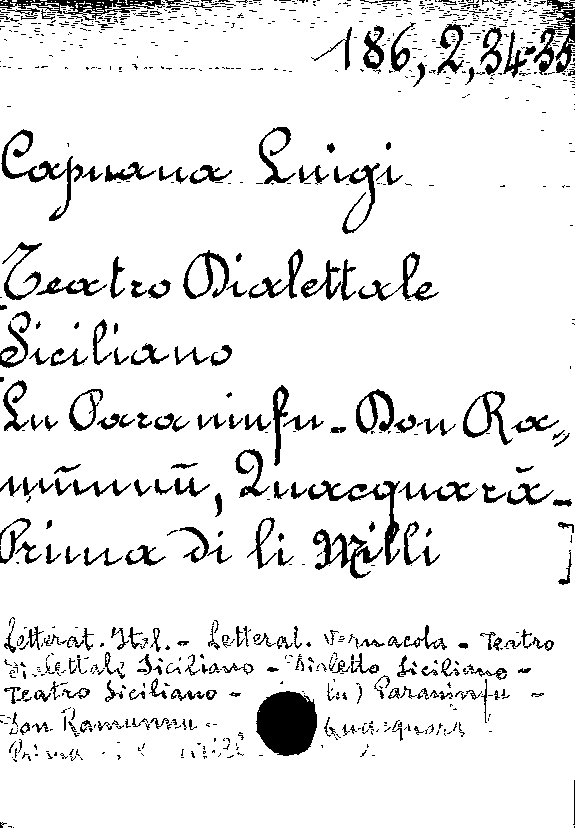 186,2,34-35
Capuana Luigi
Teatro Dialettale
Siciliano
Lu Paraninfu - Don Ra=
mūnnū, Quacquarà -
Prima di li Milli ]
Letterat. Ital. - Letterat. Vernacola - Teatro
dialettale Siciliano - Dialetto Siciliano -
Teatro Siciliano - lu) Paraninfu -
Don Ramunnu - Quacquarà
Prima